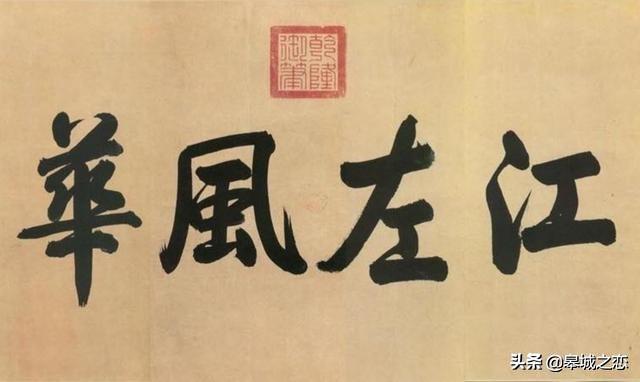 乾隆
御筆
江左風華
头条 @皋城之恋